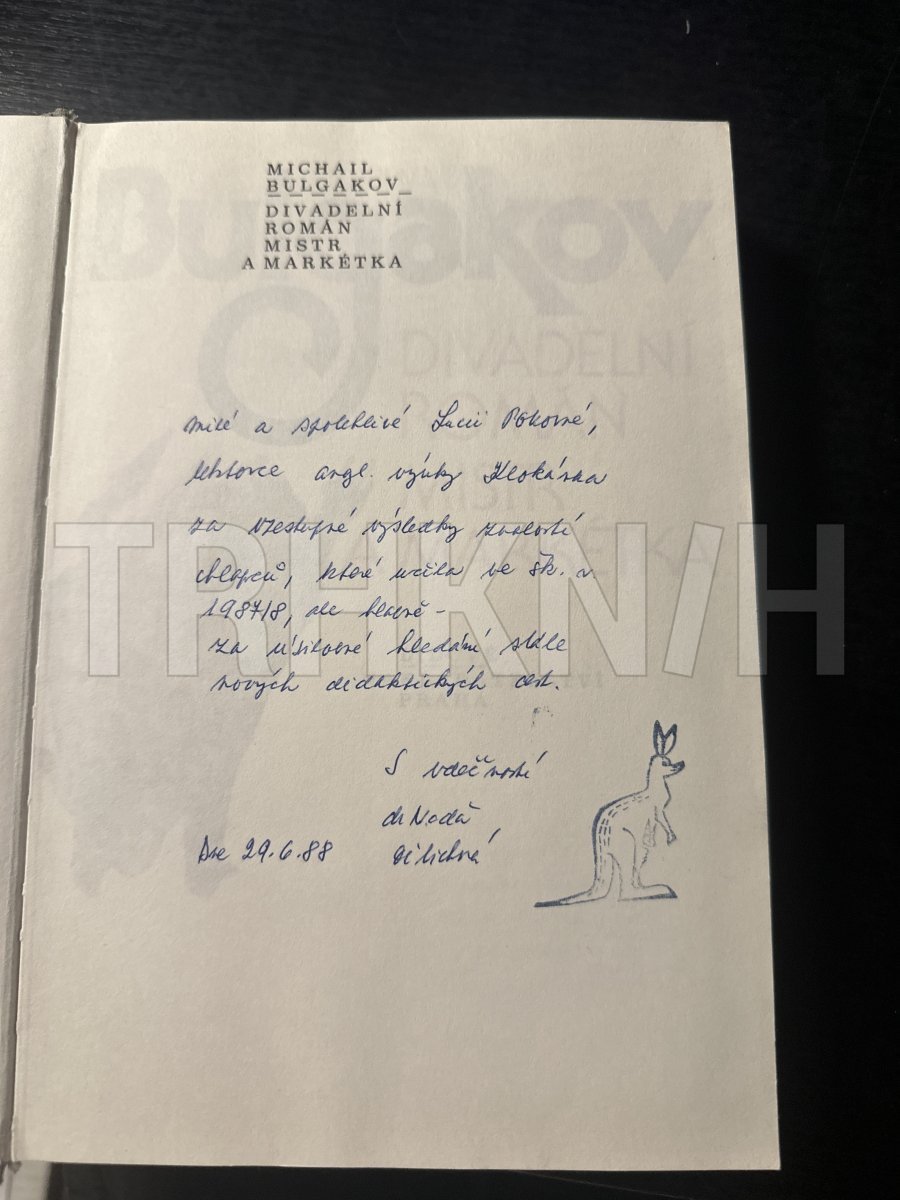 MICHAIL
BULGAKOV
DIVADELNÍ
ROMÁN
MISTR
A MARKÉTKA
Bulgakov
DIVADELNÍ
ROMÁN
milé a spolehlivé Lucii
lektorce angl. výuky Klokánka
za vzestupné výsledky znalostí
chlapců, které učila ve šk. r.
1987/8, ale hlavně –
za úsilovné hledání stále
nových didaktických cest.
PRAHA
S vděčností
dr Naďa
Dne 29.6.88
TRHKNIH